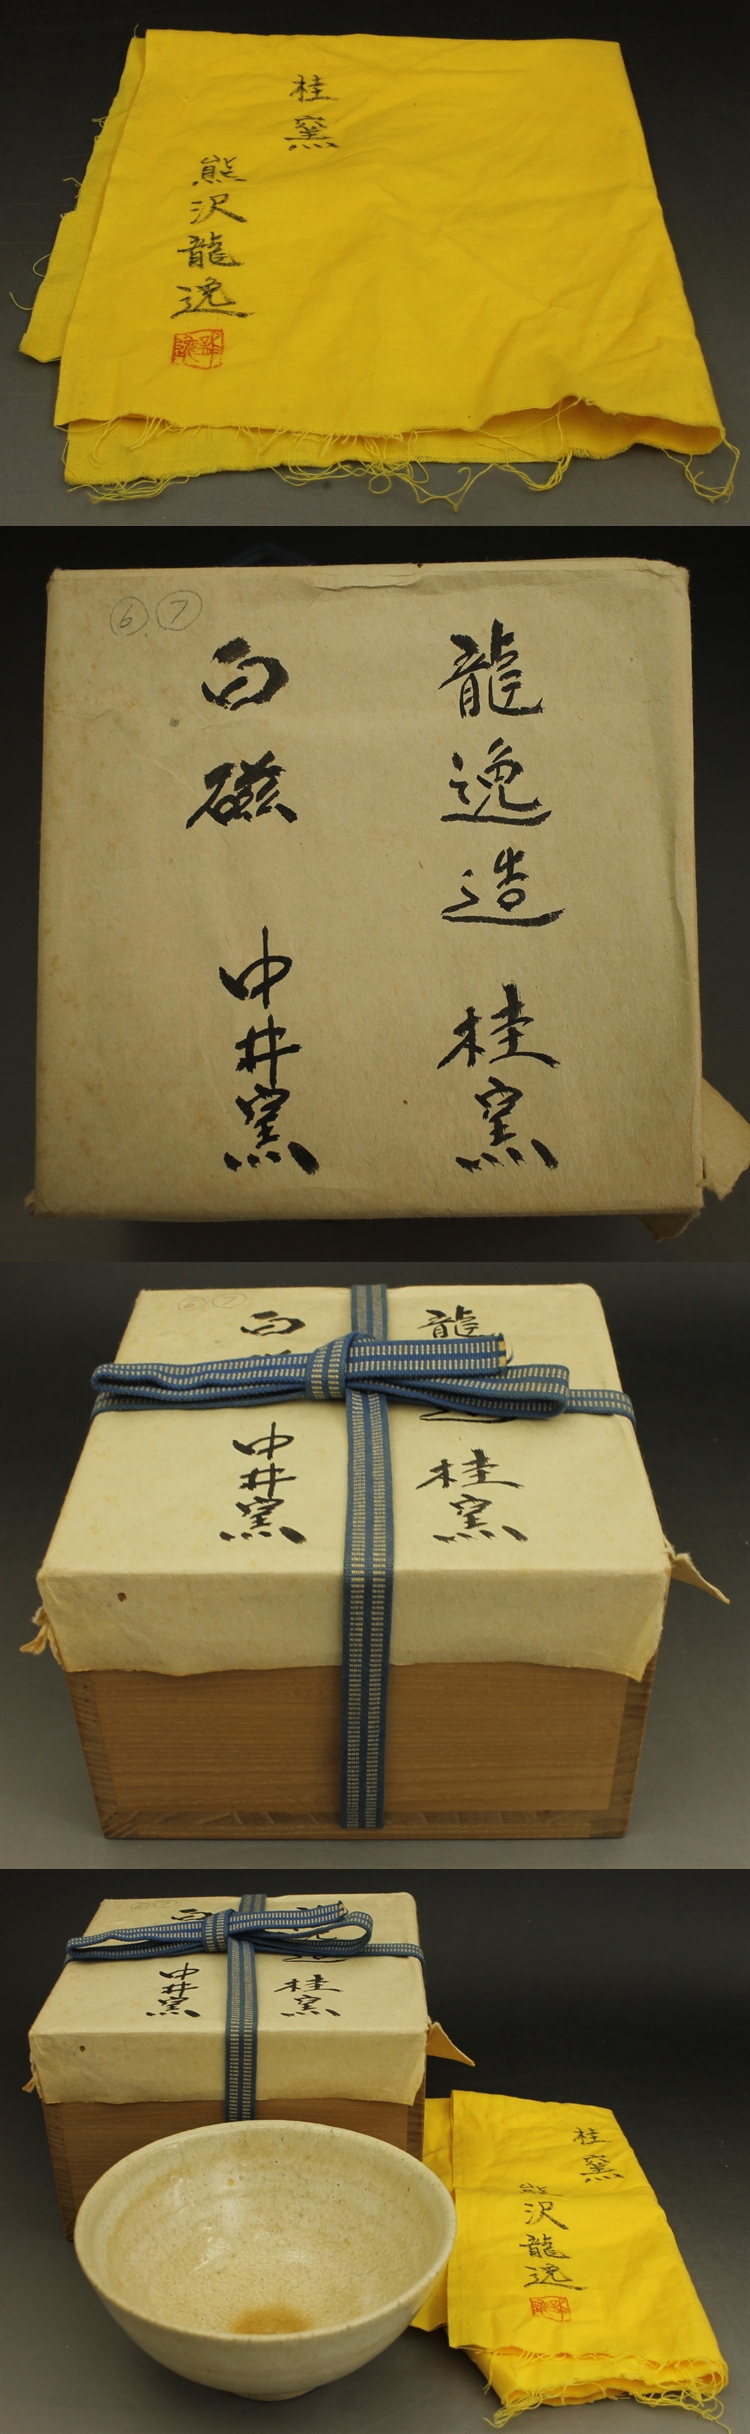 桂窯
熊沢龍逸
⑥ ⑦
龍逸造 桂窯
白磁 中井窯
白
中井窯
龍
桂窯
白
中井窯
桂窯
桂窯
熊沢龍逸